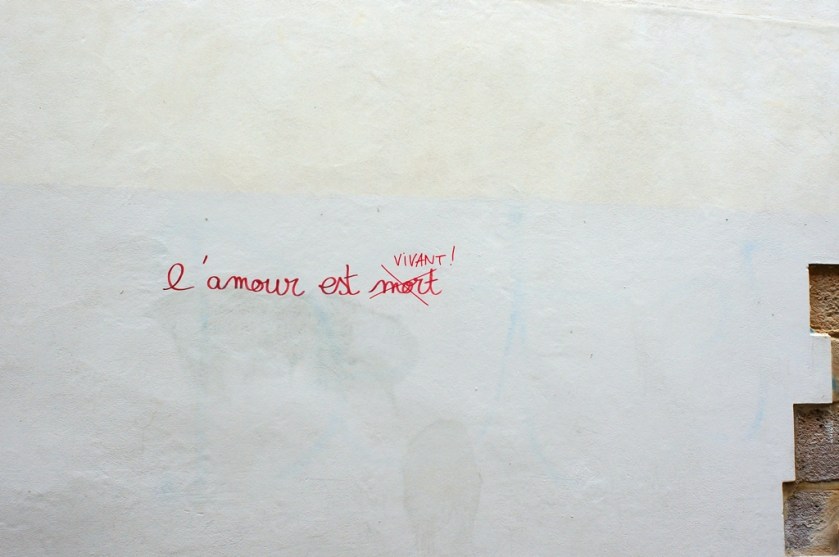 VIVANT!
l'amour est mort